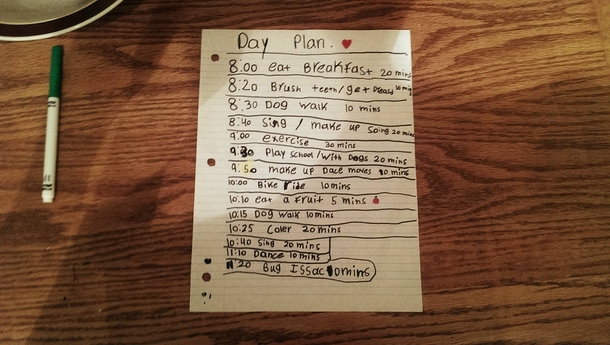 Day Plan.
8:00 eat Breakfast 20 mins
8:20 Brush teeth/get Dressd 10 min
8:30 Dog walk 10 mins
8:40 Sing / make up Song 20 mins
9:00 exercise 30 mins
9:30 Play school/with Dogs 20 mins
9:50 make up Dace moves 10 mins
10:00 Bike ride 10mins
10:10 eat a fruit 5 mins
10:15 Dog walk 10mins
10:25 Coler 20 mins
10:40 Sing 20 mins
11:10 Dance 10 mins
11:20 Bug Issac 10mins